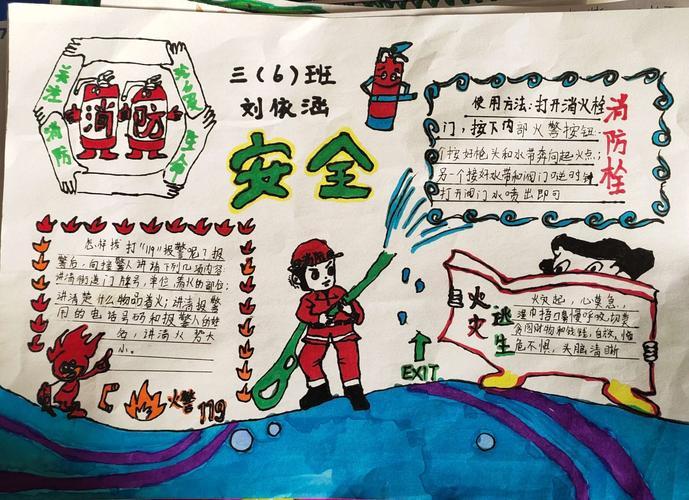 关注
消防
关爱
生命
消 防
三(6)班
刘依涵
安全
使用方法:打开消火栓
门,按下内部火警按钮
个接好枪头和水带奔向起火点;
另一个接好水带和阀门
打开阀门水喷出即可
消防栓
怎样拨打"119"报警呢?报
警后,向接警人讲清下列几项内容:
讲清街道门牌号,单位,着火的部位;
讲清楚什么物品着火;讲清报警
用的电话号码和报警人的姓
名,讲清火势大
小。
火警119
消防
EXIT
火灾
逃生
火灾起,心莫急,
湿巾捂口鼻慢呼吸,切莫
贪图财物和钱钱,自救
危不惧,头脑清晰